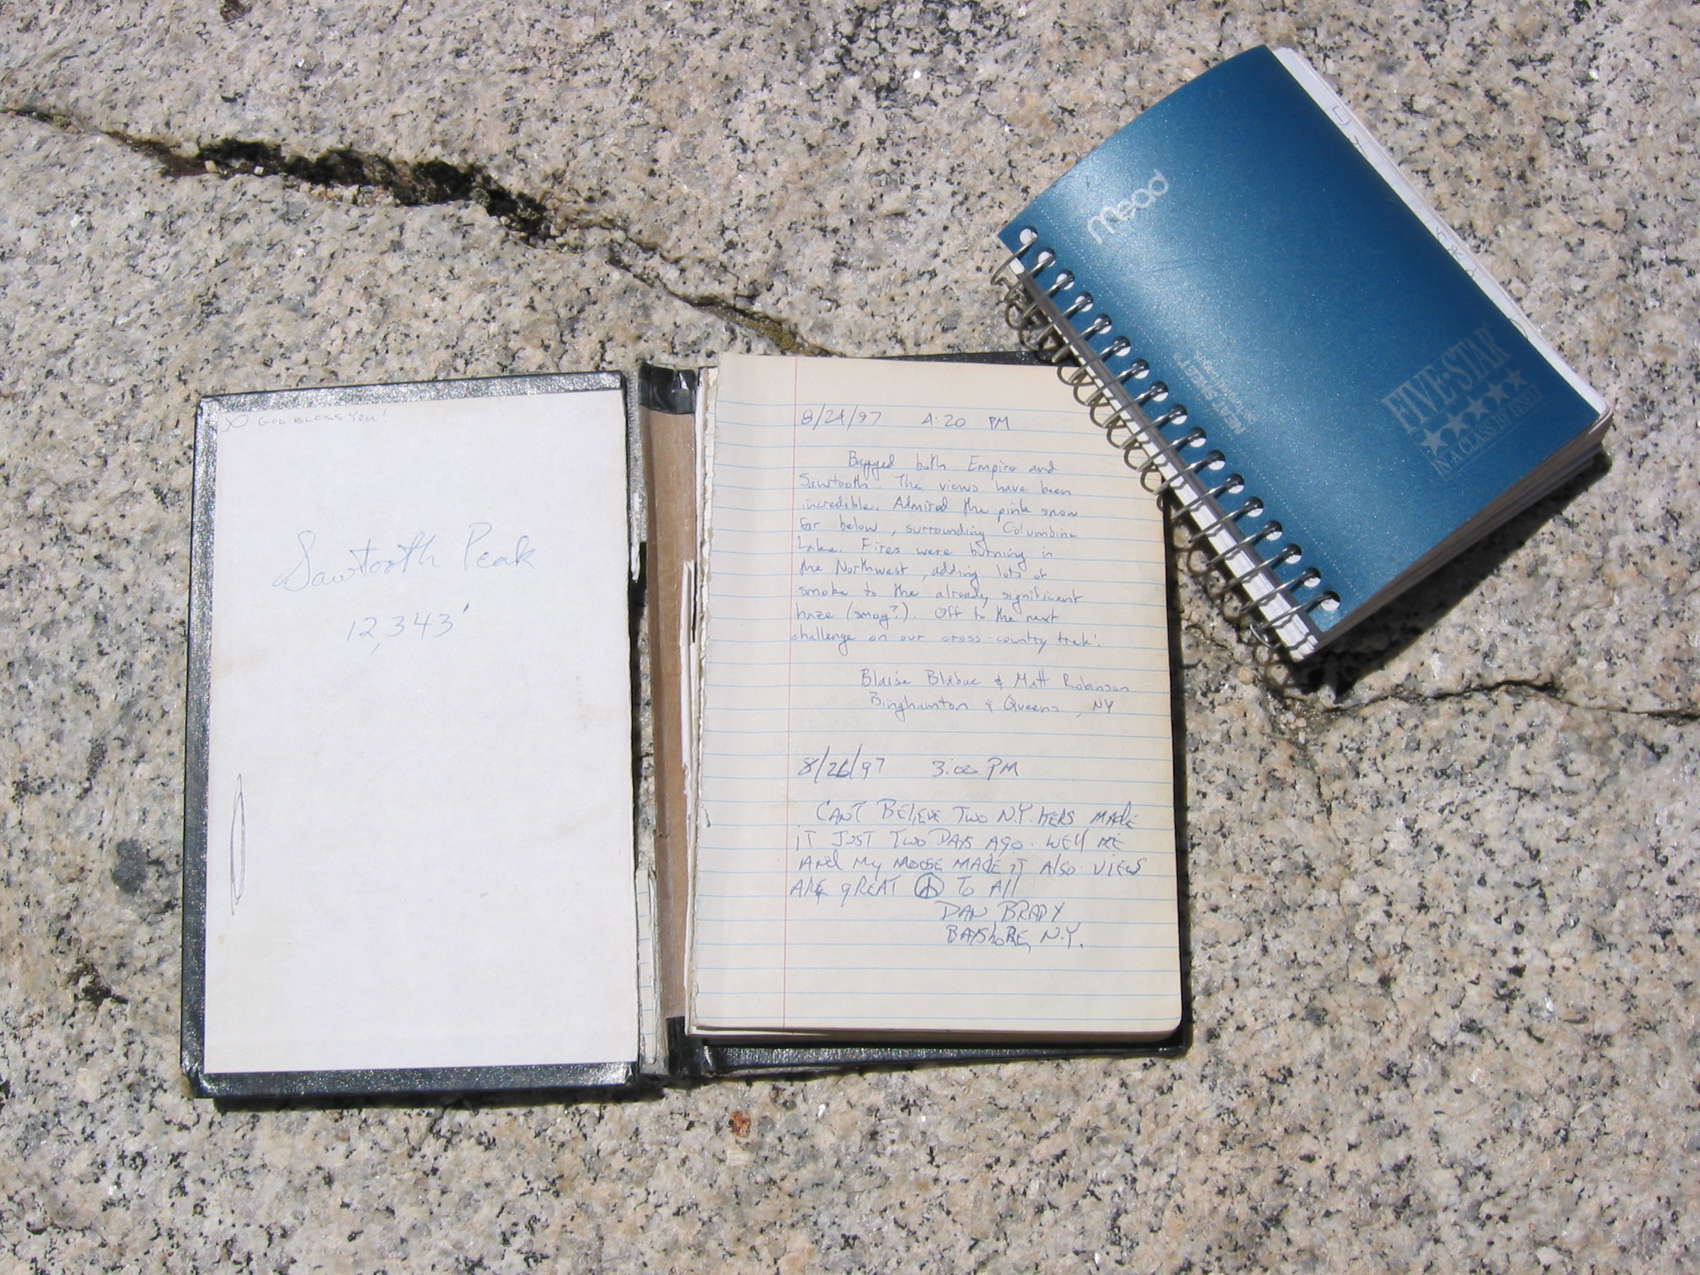 GOD BLESS YOU!
Sawtooth Peak
12,343'
8/24/97 4:20 PM
Bagged both Empire and
Sawtooth. The views have been
incredible. Admired the pink snow
far below, surrounding Columbine
Lake. Fires were burning in
the Northwest, adding lots of
smoke to the already significant
haze (smog?). Off to the next
challenge on our cross-country trek!
Blaise & Matt Robinson
Binghamton & Queens, NY
8/26/97 3:00 PM
CAN'T BELIEVE TWO N.Y.'KERS MADE
IT JUST TWO DAYS AGO. WE'LL ME
AND MY MOOSE MADE IT ALSO. VIEWS
ARE GREAT ☮ TO All
DAN BRADY
BAYSHORE, N.Y.
mead
FIVE STAR
IN A CLASS BY ITSELF